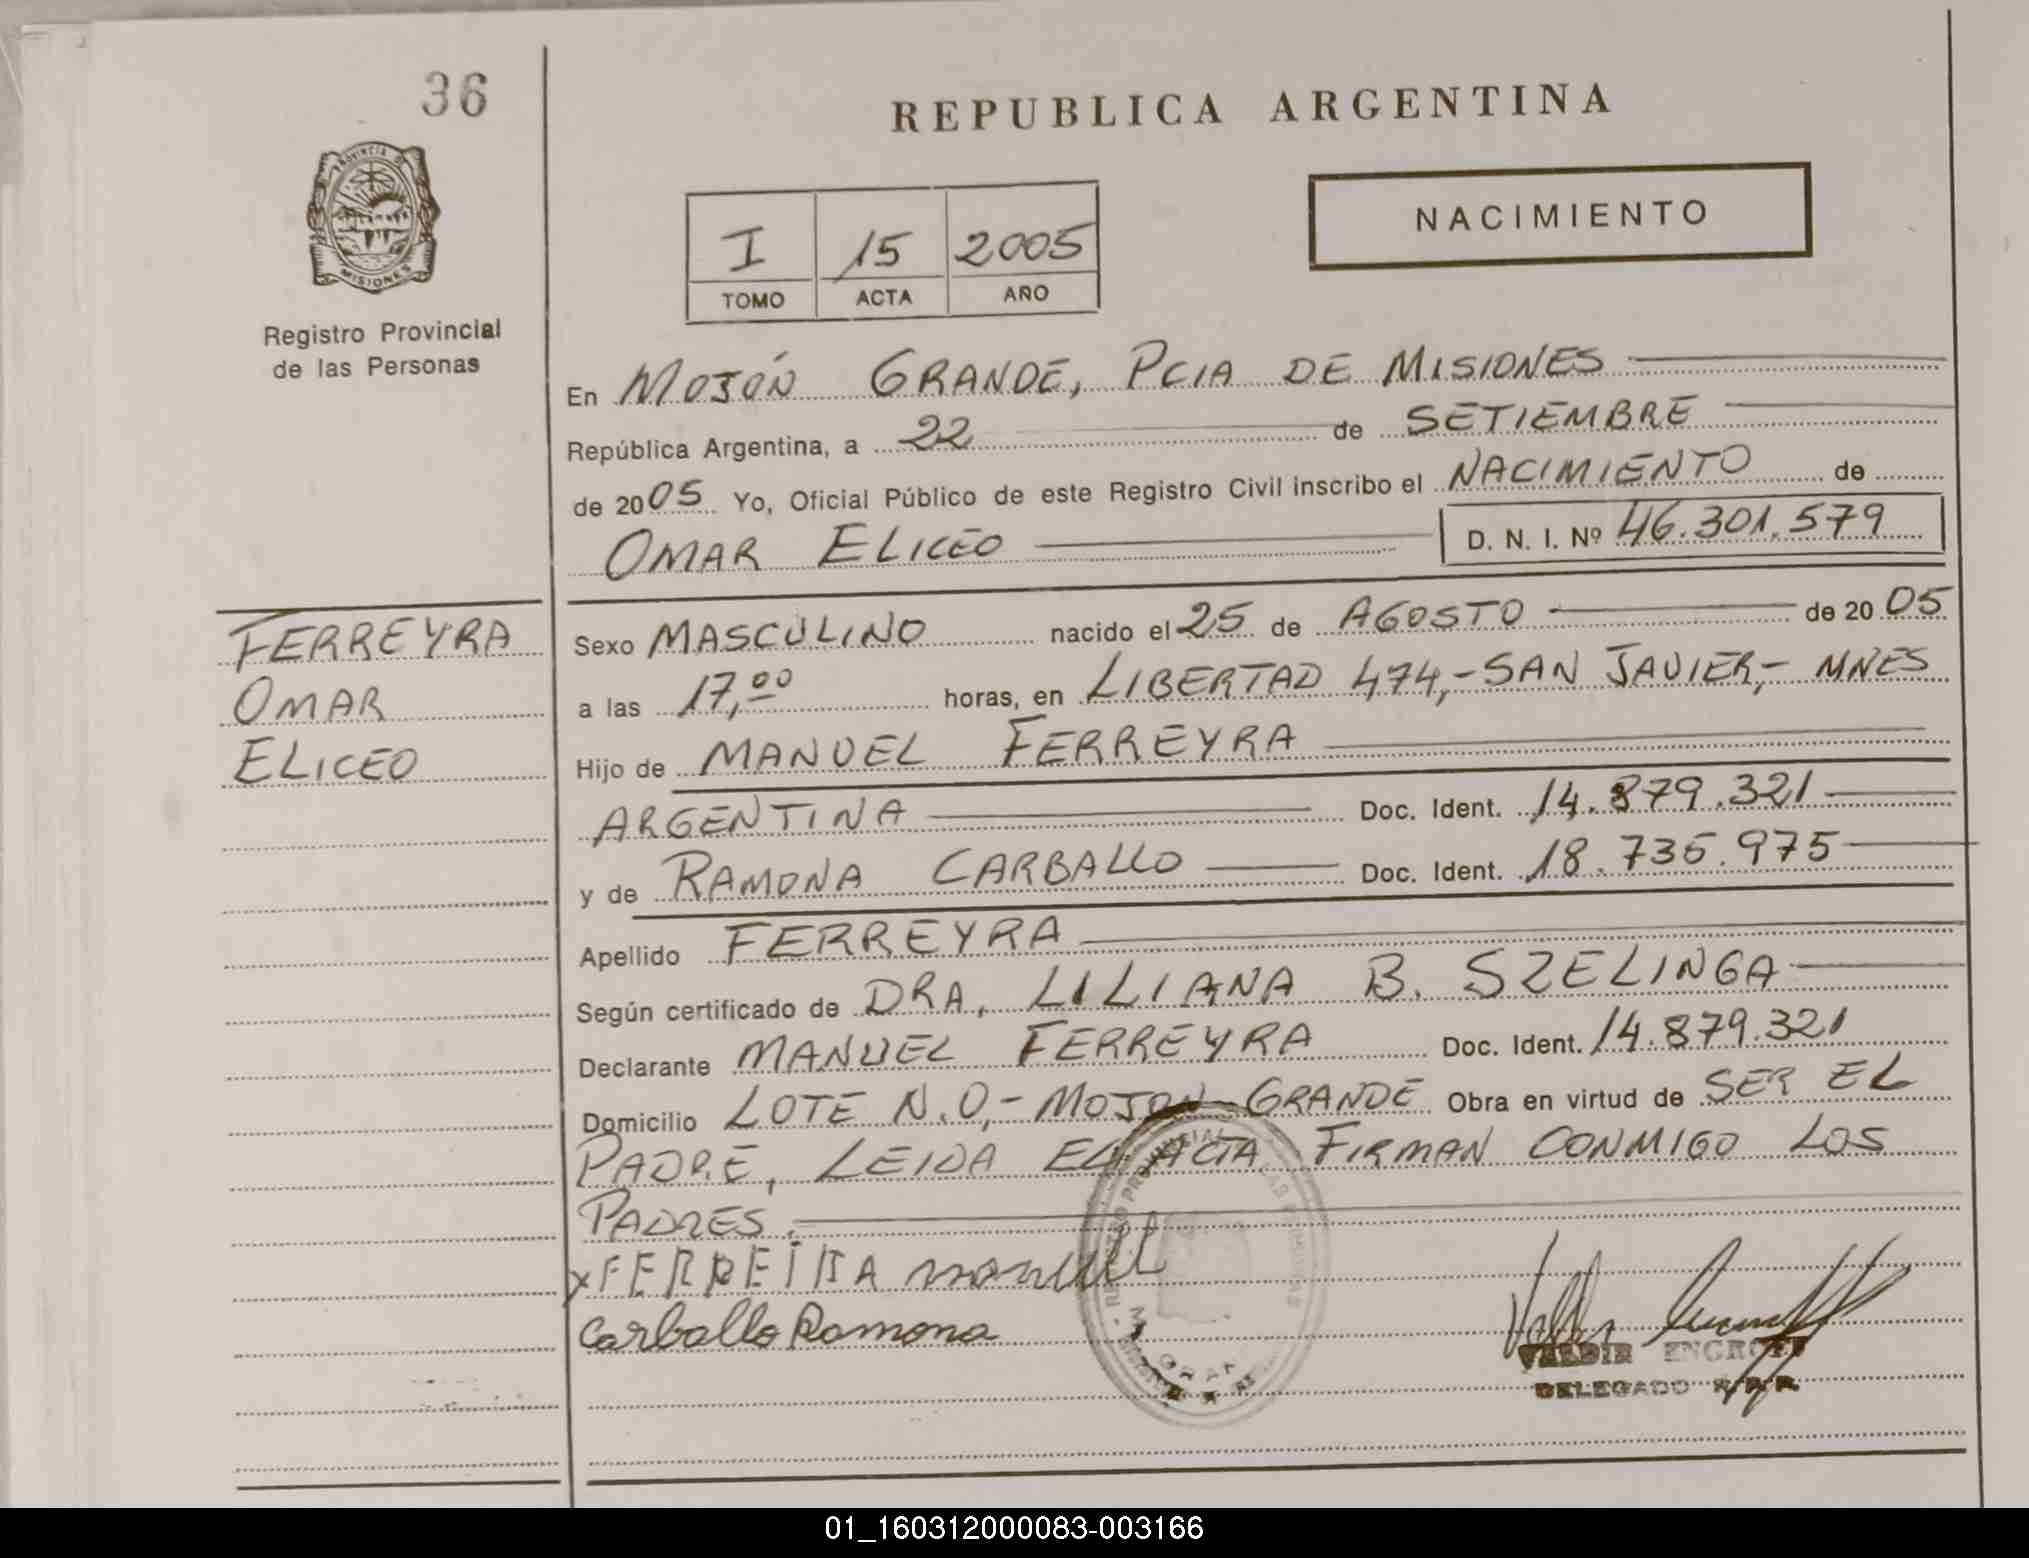 36
REPUBLICA ARGENTINA
PROVINCIA DE
MISIONES
Registro Provincial
de las Personas
I 15 2005
TOMO ACTA AÑO
NACIMIENTO
En MOJÓN GRANDE, PCIA DE MISIONES
República Argentina, a 22 de SETIEMBRE
de 2005 Yo, Oficial Público de este Registro Civil inscribo el NACIMIENTO de
OMAR ELICEO D. N. I. Nº 46.301.579
FERREYRA
OMAR
ELICEO
Sexo MASCULINO nacido el 25 de AGOSTO de 2005
a las 17,00 horas, en LIBERTAD 474,- SAN JAVIER,- MNES
Hijo de MANUEL FERREYRA
ARGENTINA Doc. Ident. 14.879.321
y de RAMONA CARBALLO Doc. Ident. 18.735.975
Apellido FERREYRA
Según certificado de DRA, LILIANA B. SZELINGA
Declarante MANUEL FERREYRA Doc. Ident. 14.879.321
Domicilio LOTE N.O,- MOJON GRANDE Obra en virtud de SER EL
PADRE, LEIDA EL ACTA FIRMAN CONMIGO LOS
PADRES.
x FERREIRA manuel
Carballo Ramona
REGISTRO PROVINCIAL LAS PERSONAS
VALDIR
DELEGADO R.P.P.
01_160312000083-003166